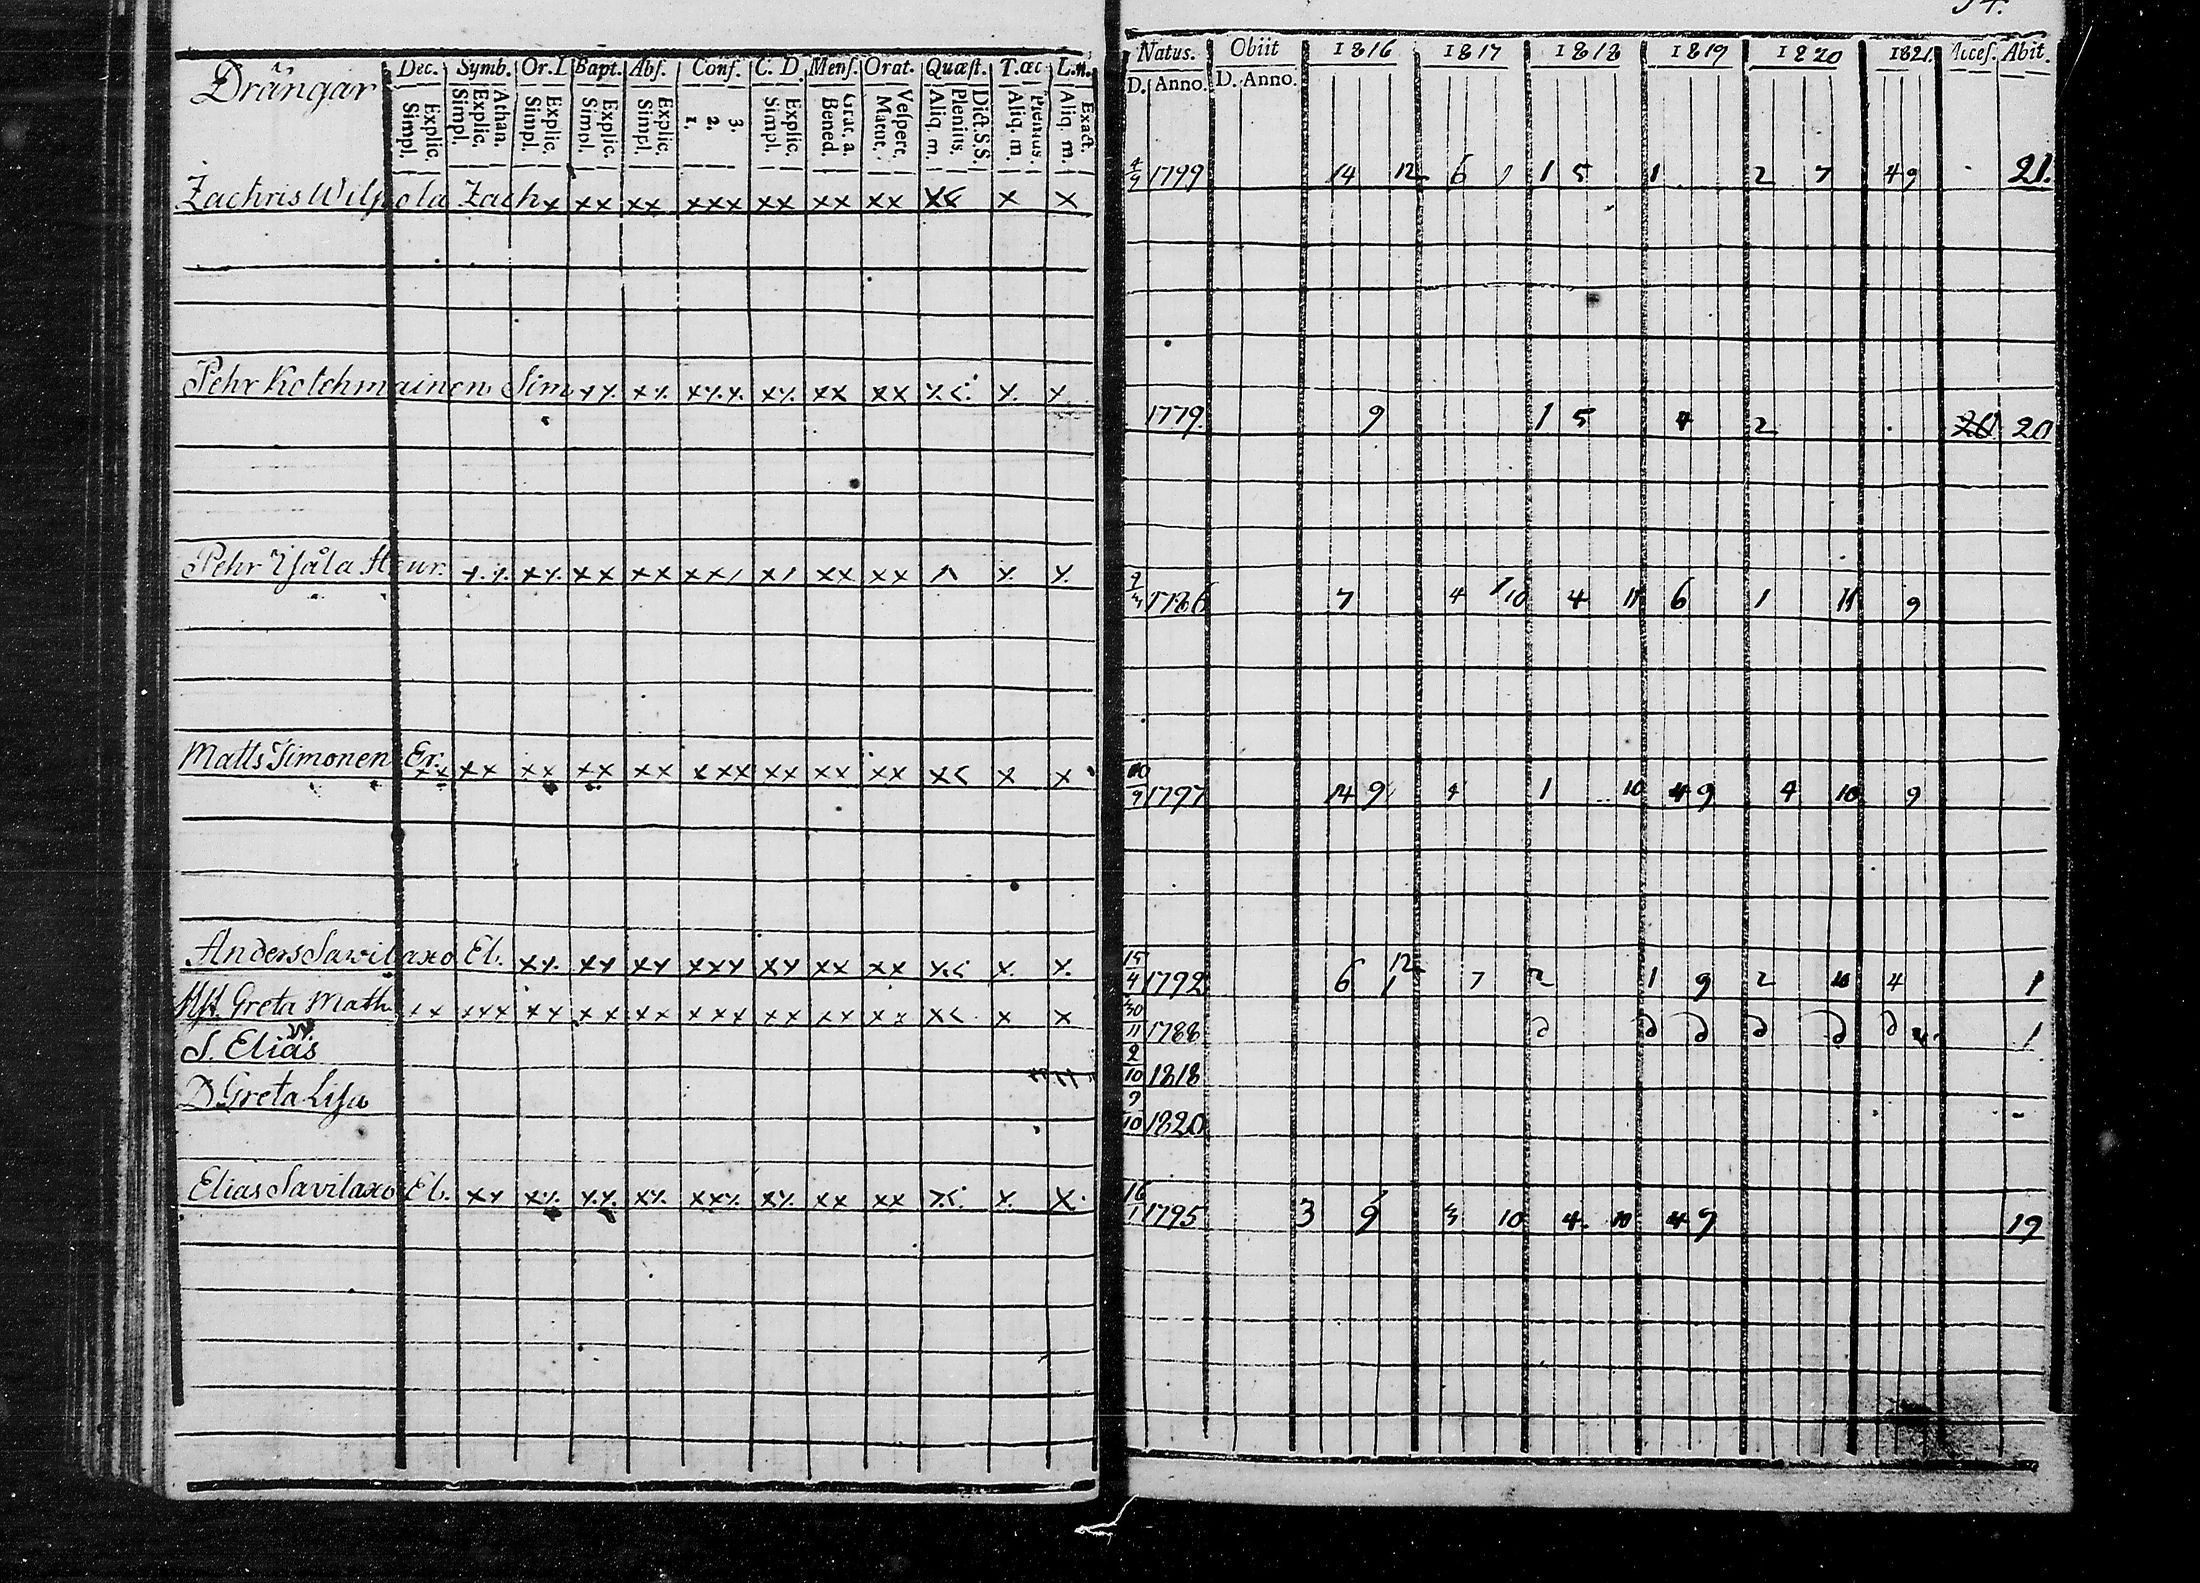 54.
Drängar Dec. Symb. Or. D. Bapt. Abs. Conf. C. D. Mens. Orat. Quæst. T. œc. L. n.
Explic. Simpl. Athan. Explic. Simpl. Explic. Simpl. Explic. Simpl. Explic. Simpl. 3. 2. 1. Explic. Simpl. Grat. a. Bened. Vespert. Matut. Dict. S.S. Plenius. Aliq. m. Plenius. Aliq. m. Exact. Aliq. m.
Natus. Obiit 1816 1817 1818 1819 1820 1821. Acces. Abit.
D. Anno. D. Anno.
Zachris Wilpola Zach x xx xx xxx xx xx xx x< x x 1799 14 12 6 1 5 1 2 7 4 9 21.
Pehr Kotchmainen Sim xx xx xxx xx xx xx x< x x 1779. 9 1 5 4 2 20 20
Pehr Yjåla Henr. xx xx xx xx xxx x1 xx xx x x 9/3 1786 7 4 1 10 4 11 6 1 11 9
Matts Simonen Er. xx xx xx xx xx xxx xx xx xx x< x x 10/9 1797 14 9 4 1 10 4 9 4 10 9
Anders Savilaxo El. xx xx xx xxx xx xx xx x< x x 15/4 1792 6 12 1 7 2 1 9 2 10 4 1
Hst. Greta Math xx xxx xx xx xx xxx xx xx xx x< x x 30/11 1788 d d d d d d 1
S. Elias 2/10 1818
D Greta Lisa 9/10 1820
Elias Savilaxo El. xx xx xx xx xxx xx xx xx x< x x 16/1 1795 3 9 3 10 4 10 4 9 19